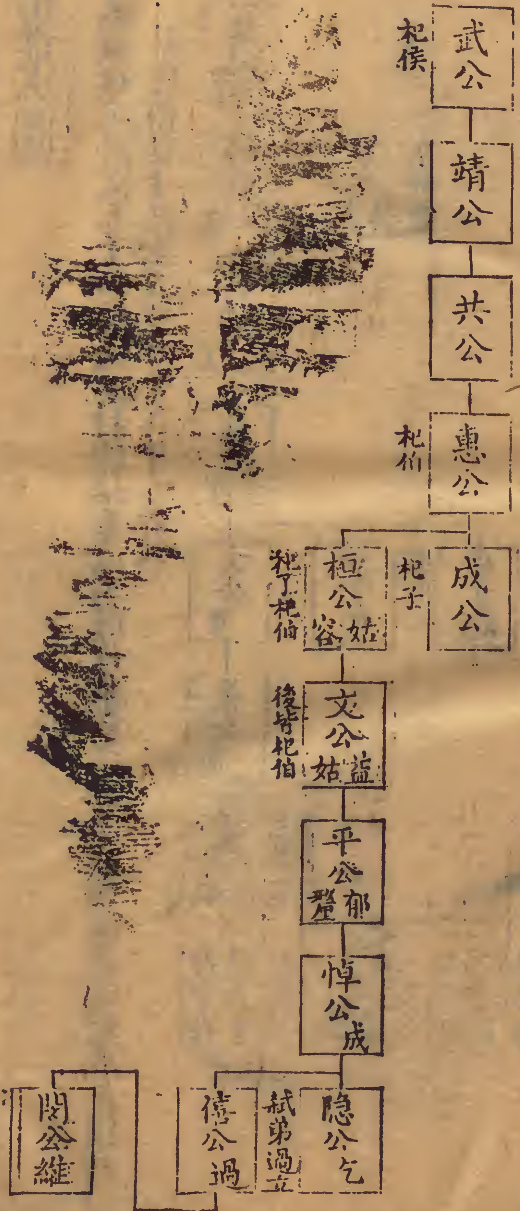 武公
杞侯
靖公
共公
惠公
杞伯
成公
杞子
桓公姑容
杞子杞伯
文公益姑
後皆杞伯
平公郁釐
悼公成
隐公乞
弑弟過立
僖公過
閔公維